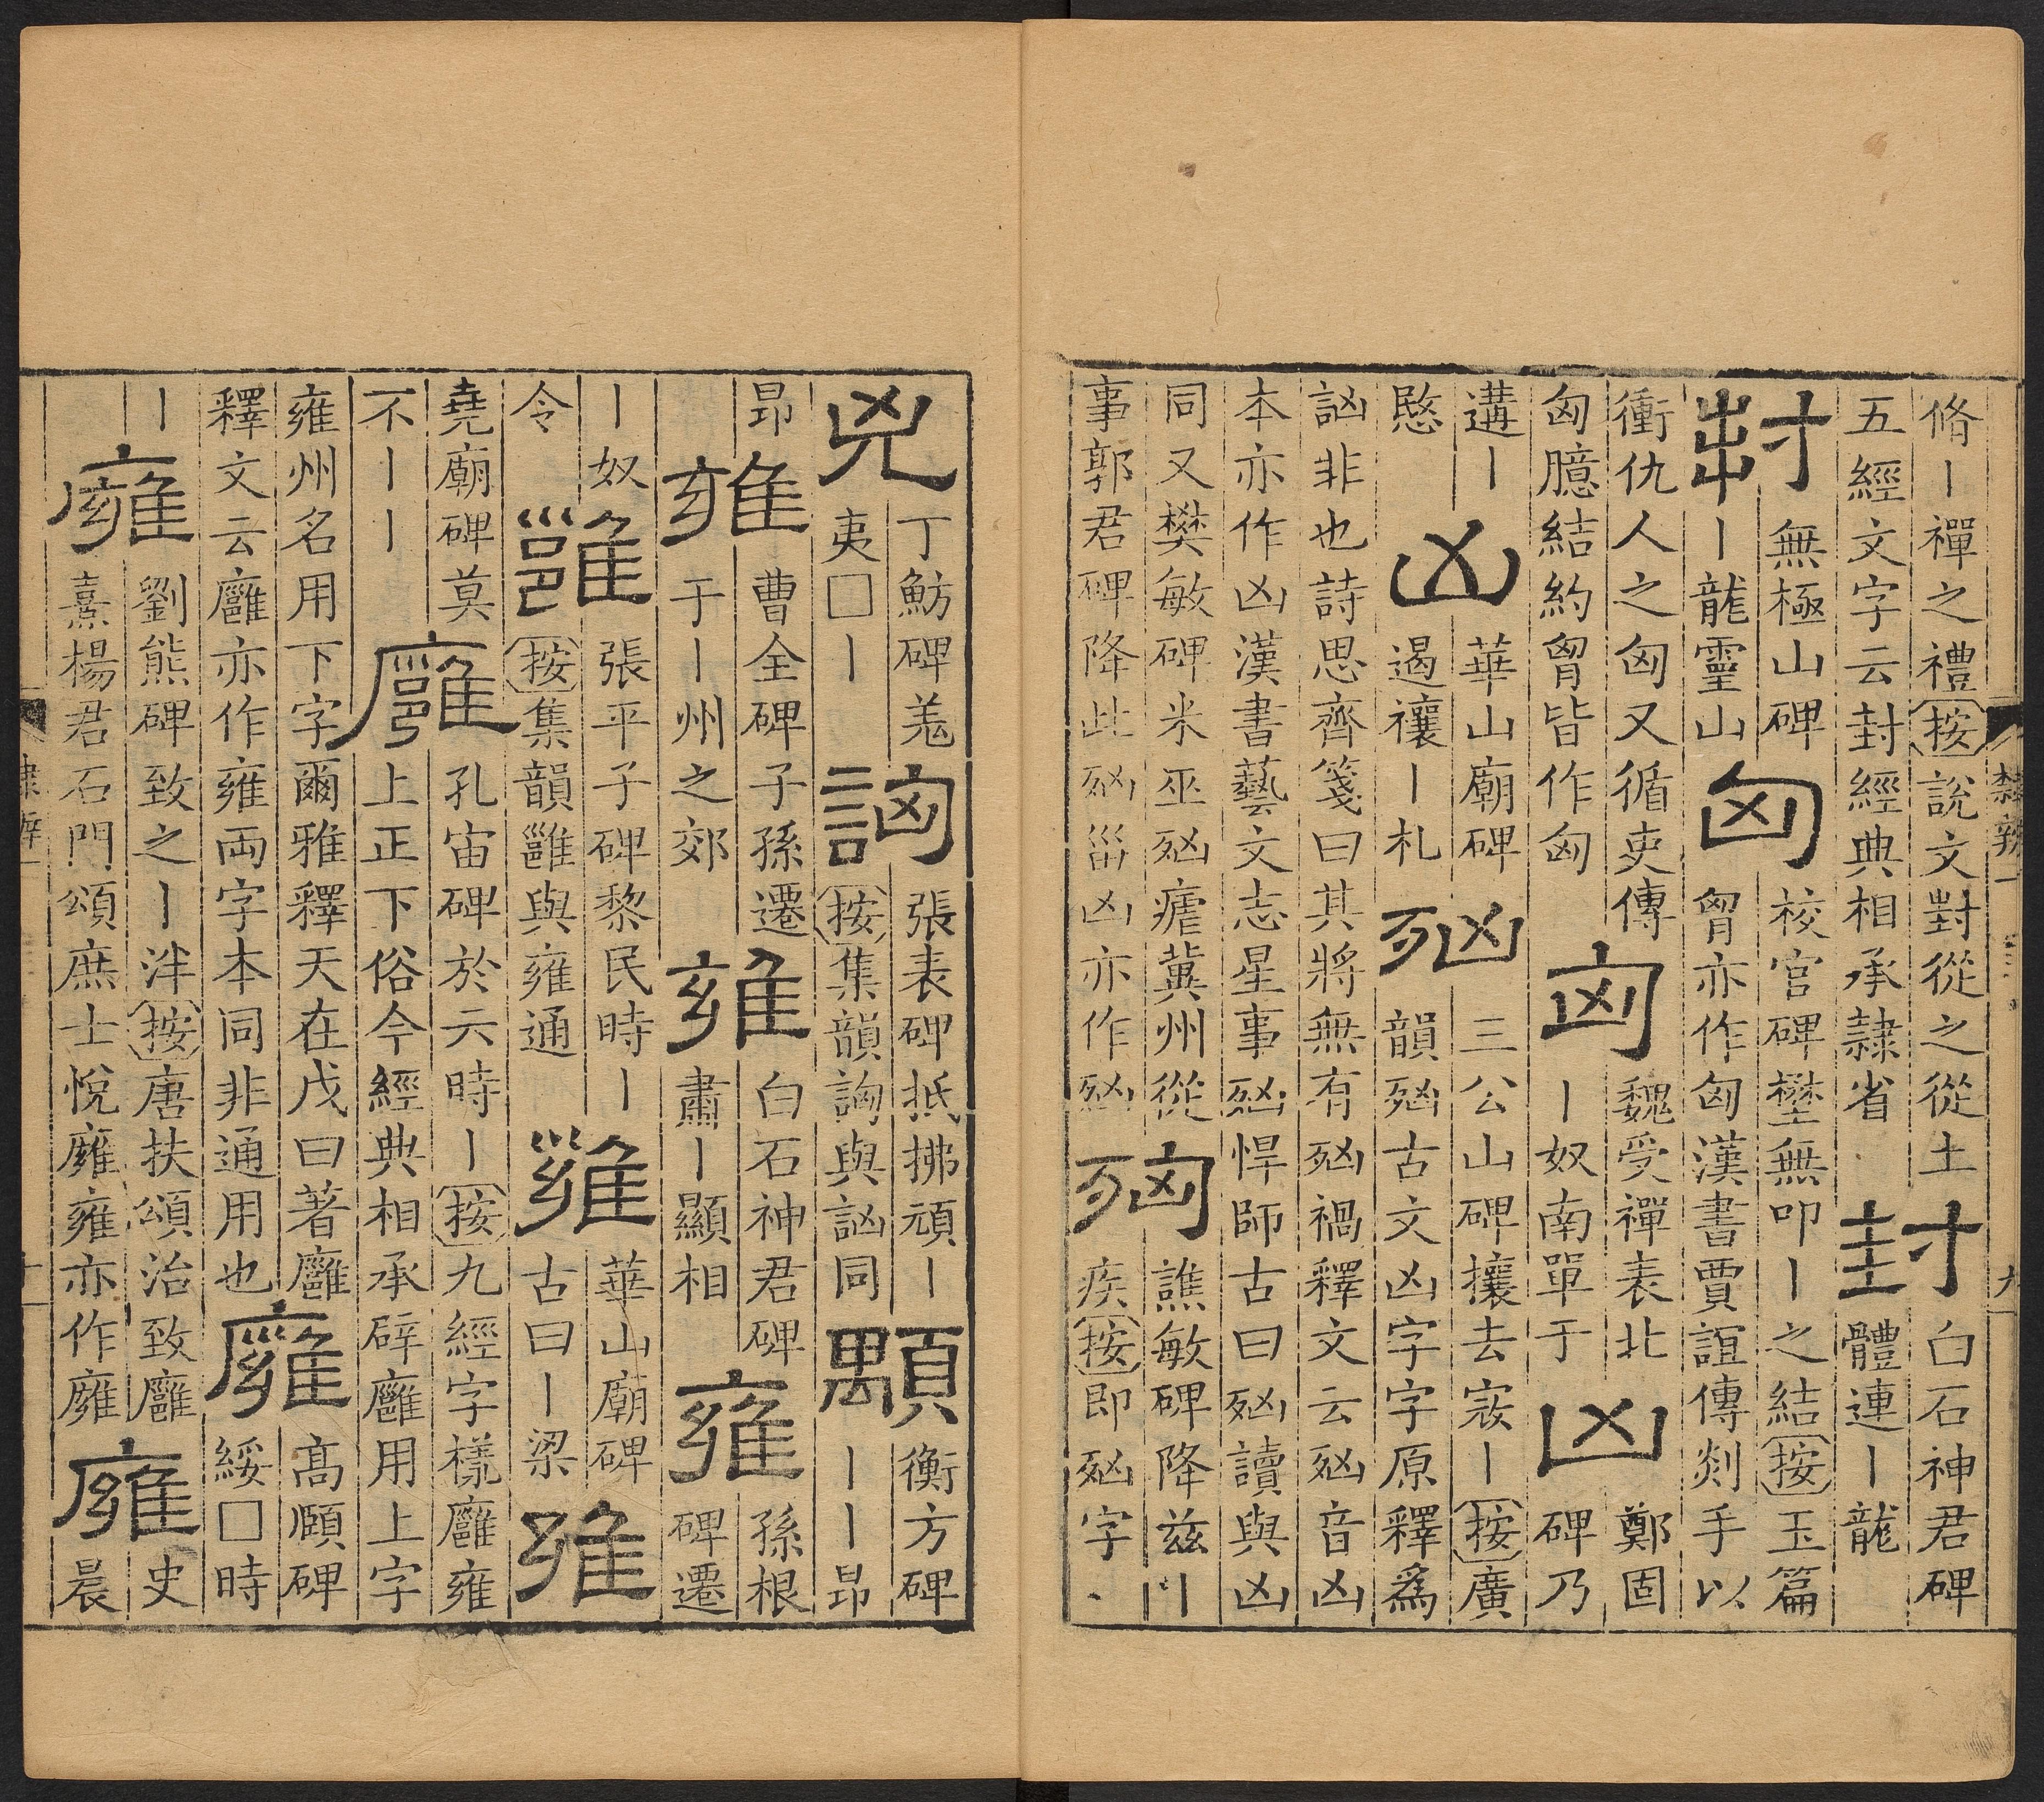 脩｜禪之禮按說文對從之從土
五經文字云封經典相承隸省
封
白石神君碑
體連｜龍
封
無極山碑
｜龍靈山
匈
校官碑㮤無叩｜之結按玉篇
胷亦作匈漢書賈誼傳剡手以
衝仇人之匈又循吏傳
匈臆結約胷皆作匈
匈
魏受禪表北
｜奴南單于
凶
鄭固
碑乃
遘｜
愍
凶
華山廟碑
遏禳｜札
𣧑
三公山碑攘去寇｜按廣
韻𣧑古文凶字字原釋爲
訩非也詩思齊箋曰其將無有𣧑禍釋文云𣧑音凶
本亦作凶漢書藝文志星事𣧑悍師古曰𣧑讀與凶
同又樊敏碑米巫𣧑瘧冀州從
事郭君碑降此𣧑甾凶亦作𣧑
譙敏碑降兹｜｜
疾按即𣧑字
兇
丁魴碑羗
夷□｜
訩
張表碑抵拂頑｜
按集韻詾與訩同
顒
衡方碑
｜｜昂
昂
雍
曹全碑子孫遷
于｜州之郊
雍
白石神君碑
肅｜顯相
雍
孫根
碑遷
｜奴
令
雝
張平子碑黎民時｜
按集韻雝與雍通
雍
華山廟碑
古曰｜梁
雍
堯廟碑莫
不｜｜
廱
孔宙碑於六時｜按九經字樣廱雍
上正下俗今經典相承辟廱用上字
雍州名用下字爾雅釋天在戊曰著廱
釋文云廱亦作雍両字本同非通用也
廱
高頤碑
綏□時
｜
㢕
劉熊碑致之｜泮按唐扶頌治致廱
熹楊君石門頌庶士悅㢕雍亦作㢕
㢕
史
晨